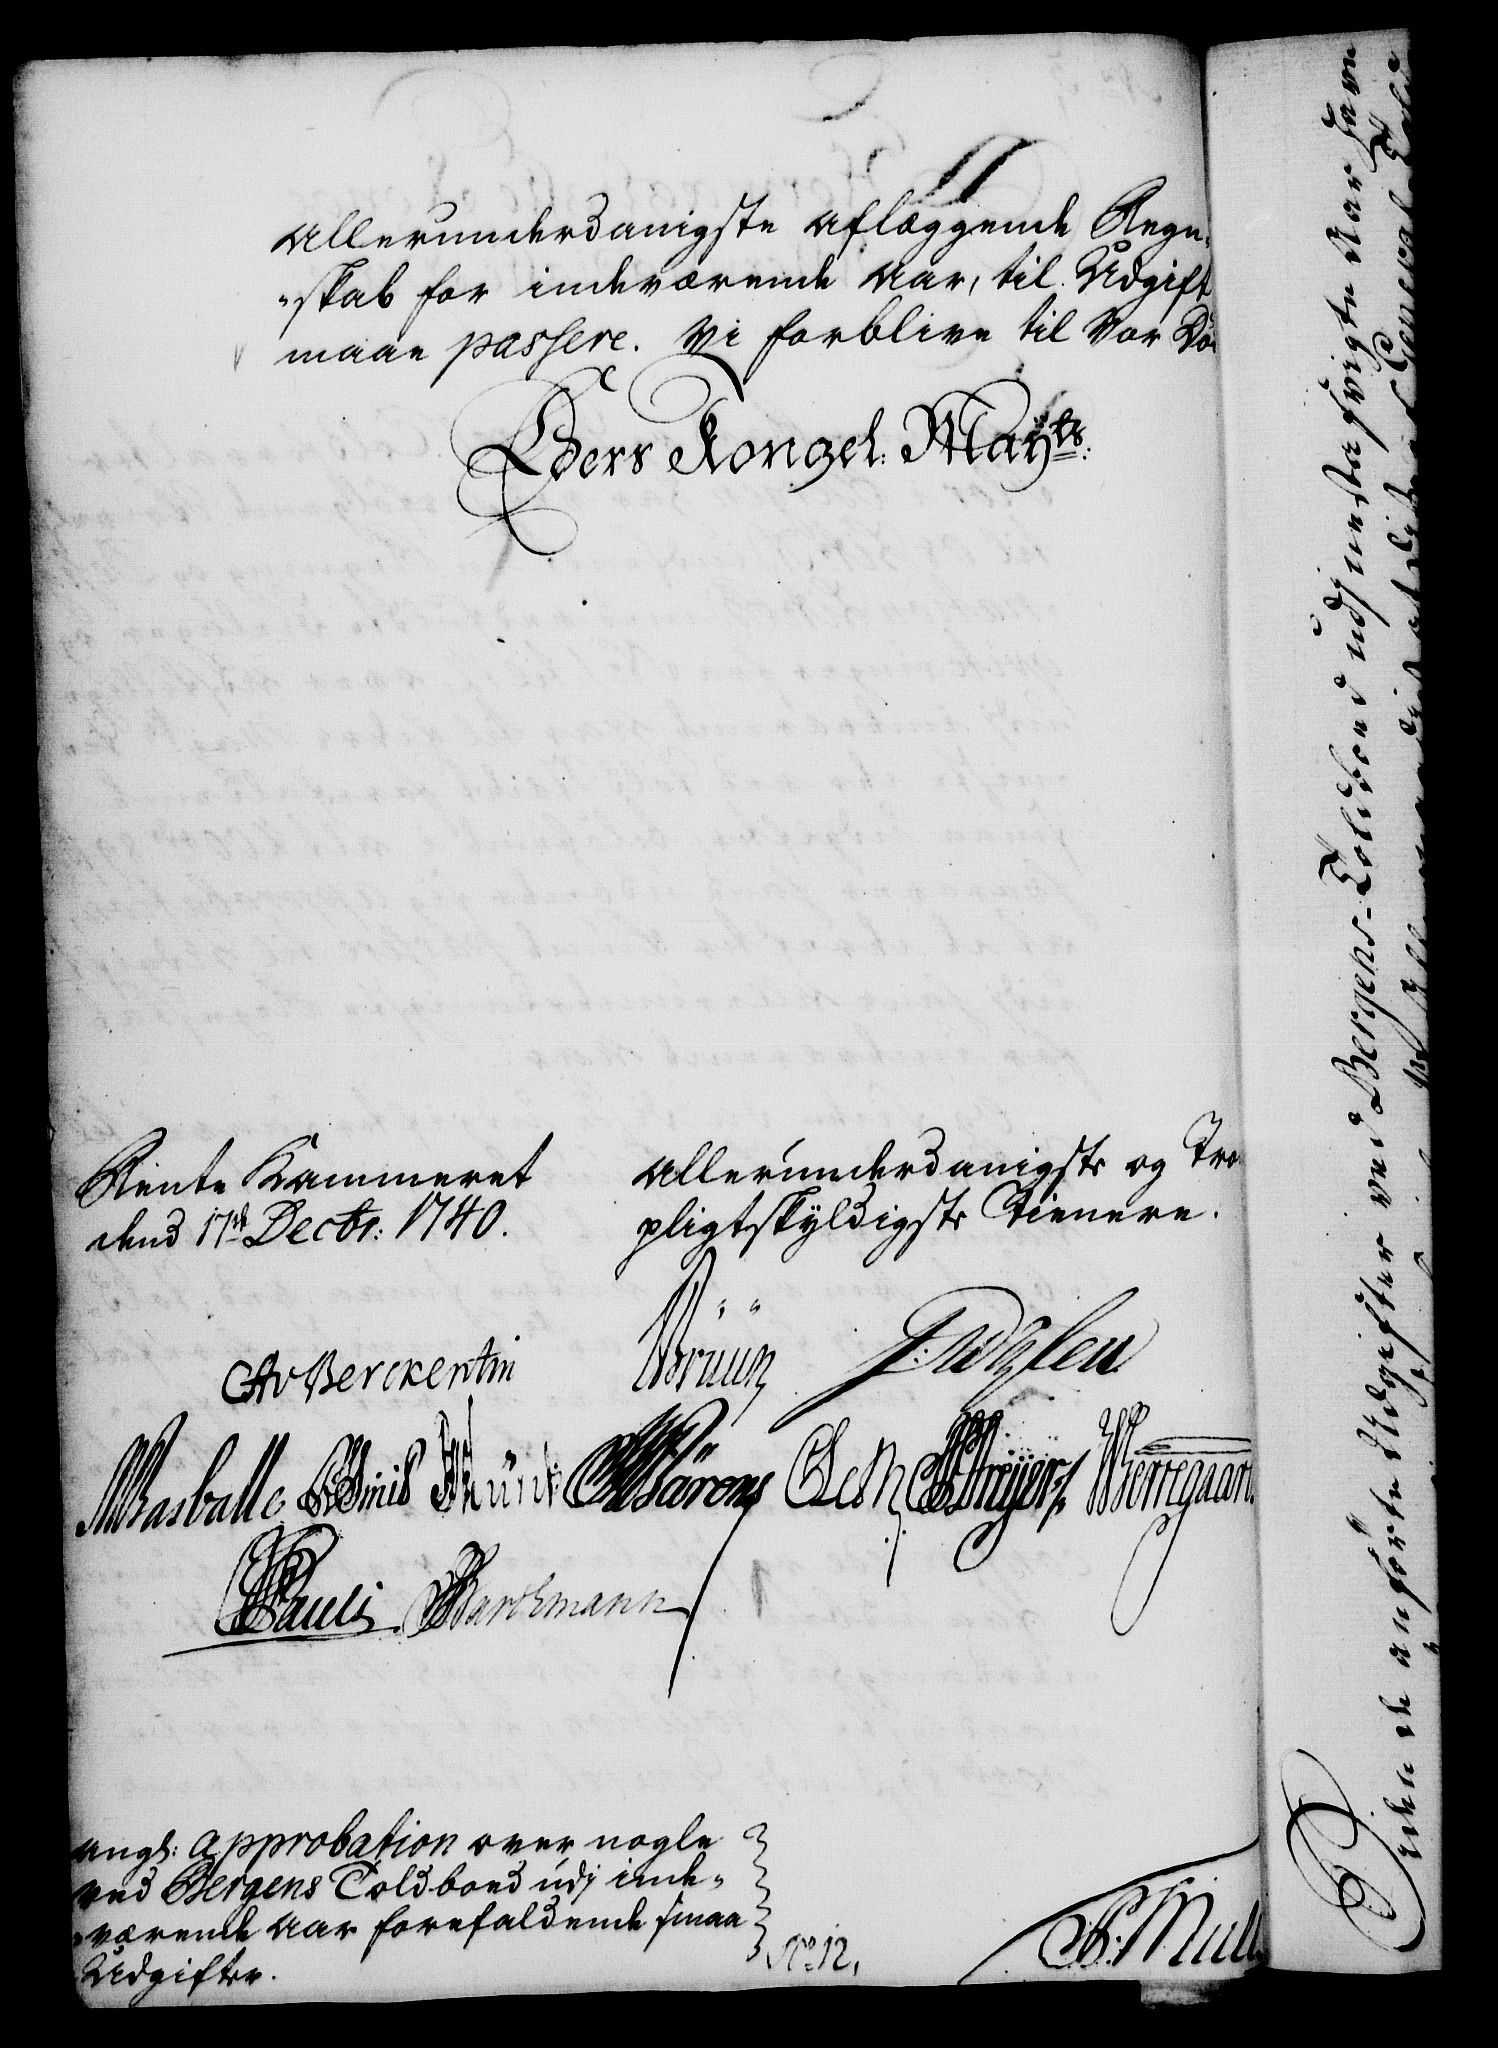 allerunderdanigste aflæggende Regn„
„skab for indeværende Aar, til Udgift
maae passere. Vi forblive til Vor Dø
Eders Kongel: Mayts:
Rente Kammeret
dend 17de Decbr: 1740.
allerunderdanigste og Tro
pligtskyldigste Tienere.
CAvBerckentin
Brüün
Raсballe Münk Bärens Meyer Werregaard
Pauli Barthmann
angl: approbation over nogle
ved Bergens Toldboed udj inde„
„værende Aar forefaldende smaa
Udgifter.
No 12,
F: Müll
Disse de anførte Udgifter ved Bergens Toldboed udj nestafvigte Aar have